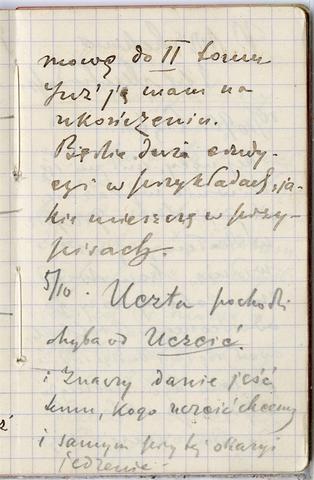 mowę do II tomu
Już ją mam na
ukończeniu.
Będzie dużo erudy-
cji w przykładach, ja-
kie umieszczę w przy-
pisach.
5/10. Uczta pochodzi
chyba od Uczcić.
i znaczy danie jeść
temu, kogo uczcić chcemy
i samym przy tej okazyi
jedzenie.